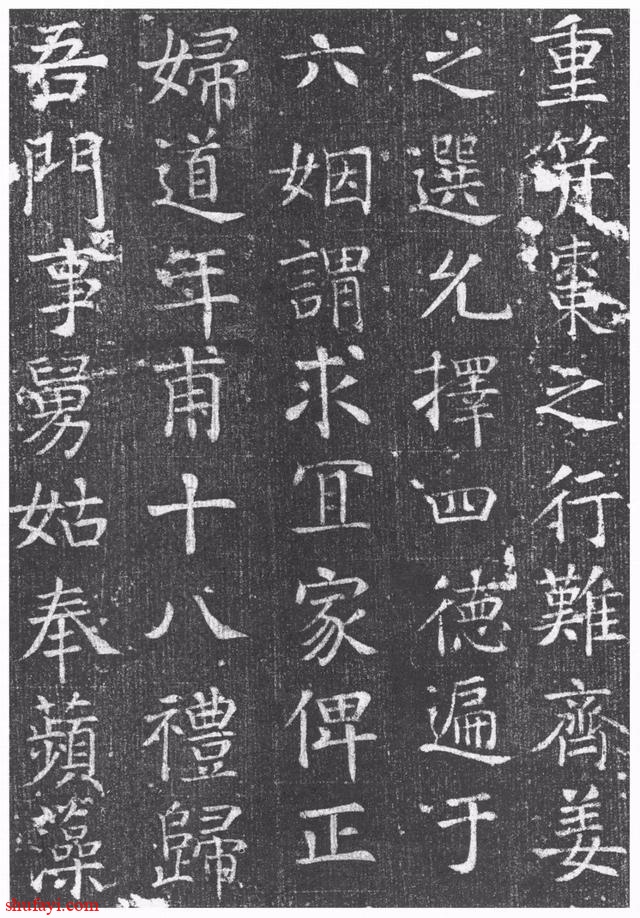 重符棗之行難齊姜
之選允擇四德遍于
六姻謂求冝家俾正
婦道年甫十八禮歸
吾門事舅姑奉蘋藻
shufayi.com